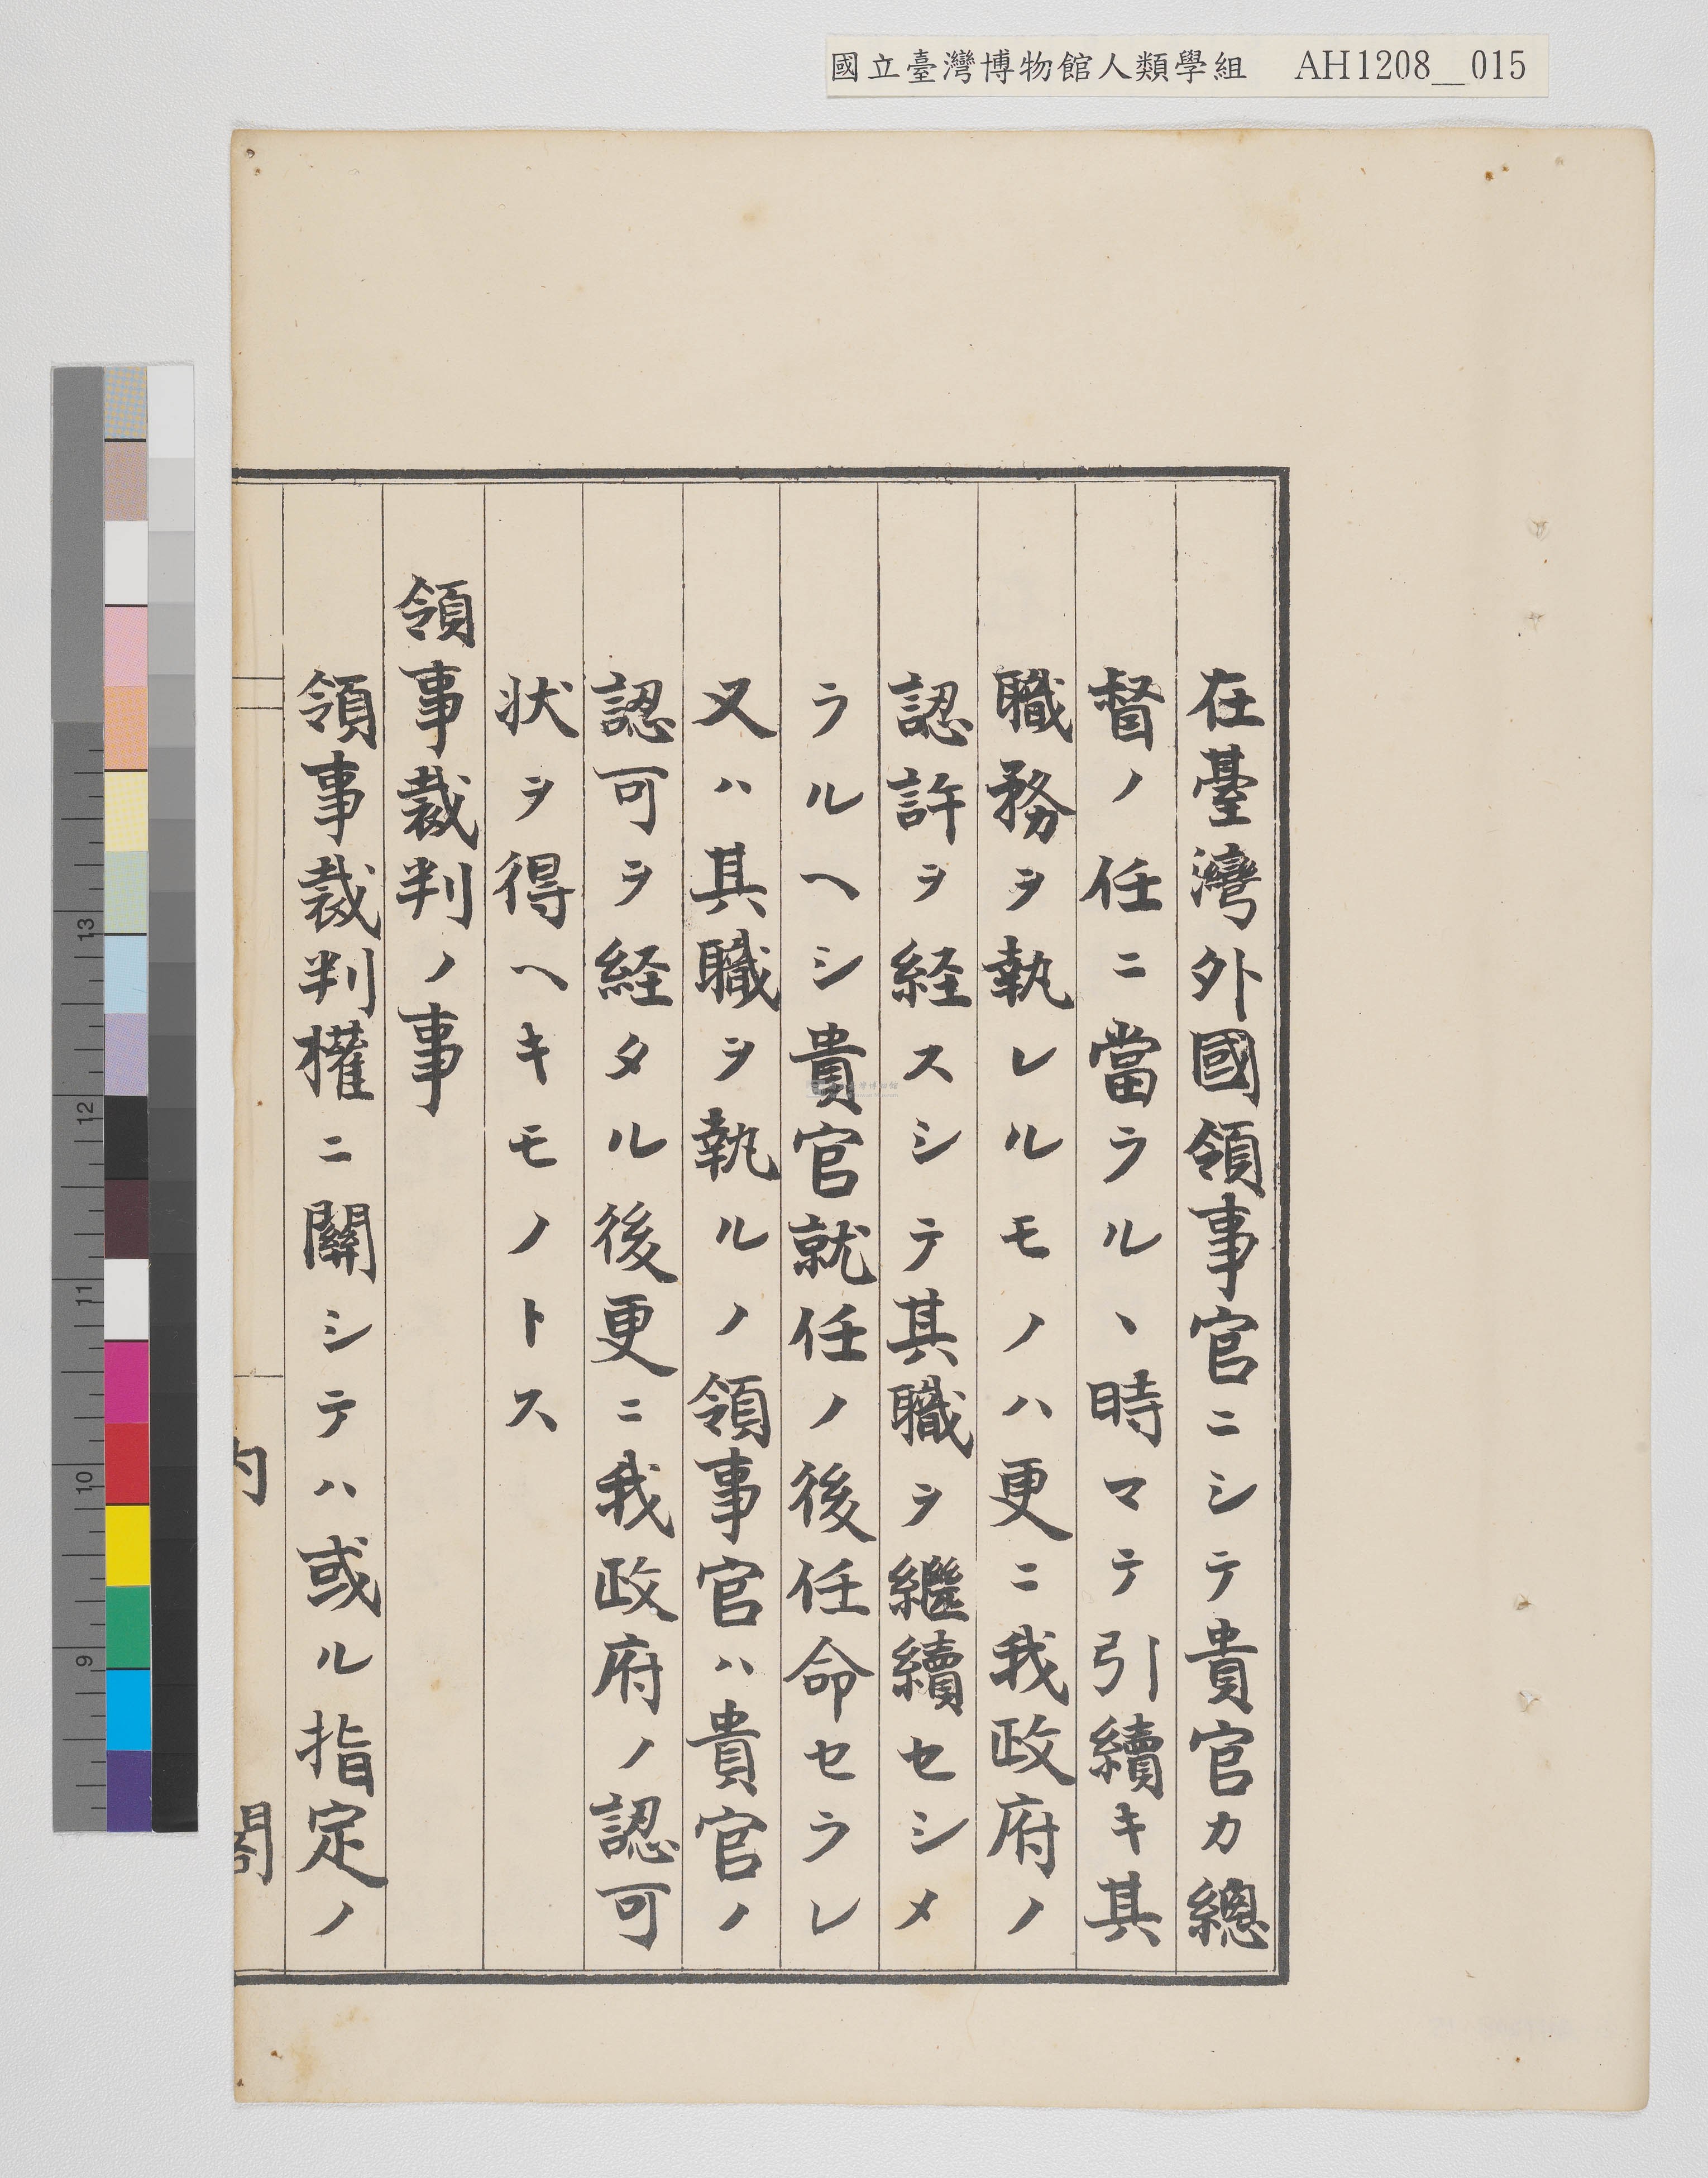 國立臺灣博物館人類學組 AH1208__015
在臺灣外國領事官ニシテ貴官カ總
督ノ任ニ當ラルヽ時マテ引續キ其
職務ヲ執レルモノハ更ニ我政府ノ
認許ヲ経スシテ其職ヲ繼續セシメ
ラルヘシ貴官就任ノ後任命セラレ
又ハ其職ヲ執ルノ領事官ハ貴官ノ
認可ヲ経タル後更ニ我政府ノ認可
状ヲ得ヘキモノトス
領事裁判ノ事
領事裁判權ニ關シテハ或ル指定ノ
内閣
13
12
11
10
9